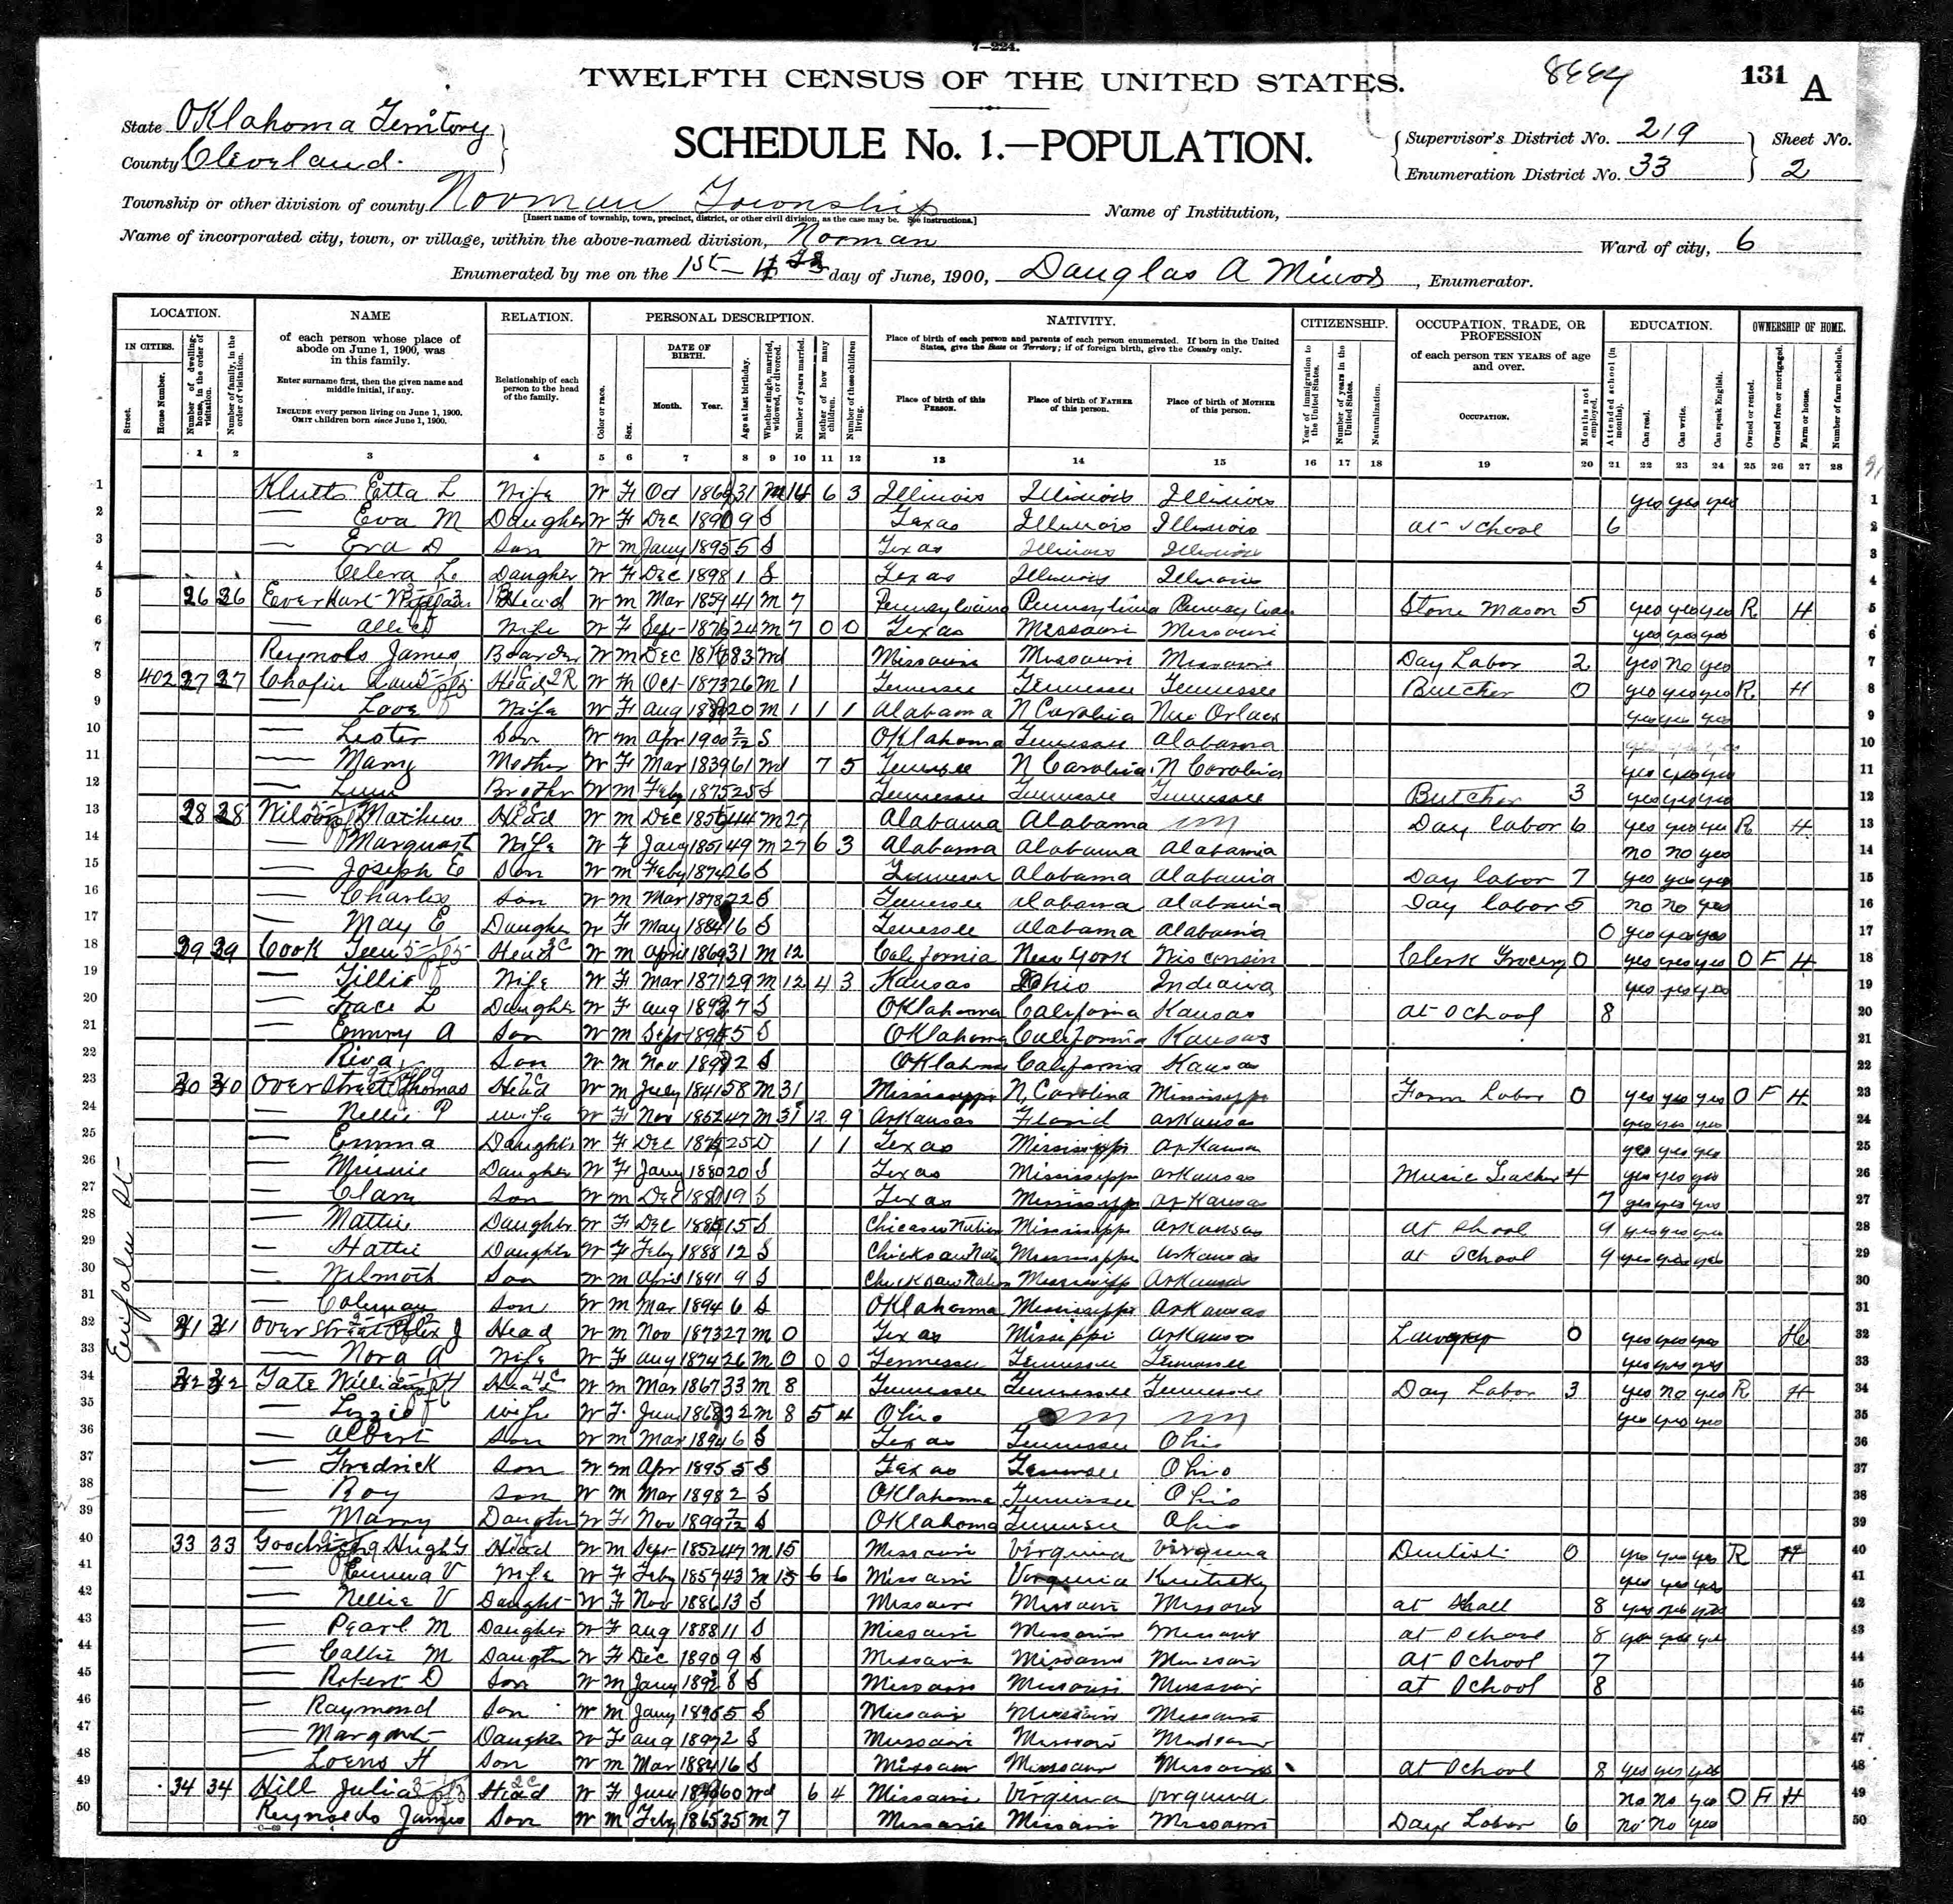 7—224.
TWELFTH CENSUS OF THE UNITED STATES.
131 A
State Oklahoma Territory
County Cleveland.
SCHEDULE No. 1.—POPULATION.
Supervisor's District No. 219
Enumeration District No. 33
Sheet No. 2
Township or other division of county Norman Township
[Insert name of township, town, precinct, district, or other civil division, as the case may be. See instructions.]
Name of Institution,
Name of incorporated city, town, or village, within the above-named division, Norman
Ward of city, 6
Enumerated by me on the 1st day of June, 1900, Douglas A Minor, Enumerator.
LOCATION. NAME RELATION. PERSONAL DESCRIPTION. NATIVITY. CITIZENSHIP. OCCUPATION, TRADE, OR PROFESSION EDUCATION. OWNERSHIP OF HOME.
IN CITIES. Street. House Number. Number of dwelling-house, in the order of visitation. Number of family, in the order of visitation.
of each person whose place of abode on June 1, 1900, was in this family.
Enter surname first, then the given name and middle initial, if any.
INCLUDE every person living on June 1, 1900. OMIT children born since June 1, 1900.
Relationship of each person to the head of the family.
Color or race. Sex. DATE OF BIRTH. Month. Year. Age at last birthday. Whether single, married, widowed, or divorced. Number of years married. Mother of how many children. Number of these children living.
Place of birth of each person and parents of each person enumerated. If born in the United States, give the State or Territory; if of foreign birth, give the Country only.
Place of birth of this PERSON. Place of birth of FATHER of this person. Place of birth of MOTHER of this person.
Year of immigration to the United States. Number of years in the United States. Naturalization.
of each person TEN YEARS of age and over.
OCCUPATION. Months not employed.
Attended school (in months). Can read. Can write. Can speak English.
Owned or rented. Owned free or mortgaged. Farm or house. Number of farm schedule.
1 2 3 4 5 6 7 8 9 10 11 12 13 14 15 16 17 18 19 20 21 22 23 24 25 26 27 28
1 Klutts Etta L Wife W F Oct 31 M 14 6 3 Illinois Illinois Illinois yes yes yes 1
2 — Eva M Daughter W F Dec 1890 9 S Texas Illinois Illinois at school 6 2
3 — D Son W m Jany 1895 5 S Texas Illinois Illinois 3
4 L. Daugher W F Dec 1898 1 S Texas Illinois Illinois 4
5 26 26 Everhart Head W m Mar 1859 41 M 7 Pennsylvania Pennsylvania Stone Mason 5 yes yes yes R H 5
6 — Wife W F Sep 24 M 7 0 0 Texas Missouri Missouri yes yes yes 6
7 Reynols James Boarder W m Dec 83 Wd Missouri Missouri Missouri Day Labor 2 yes No yes 7
8 402 27 27 Chafin Head W m Oct 1873 26 M 1 Tennessee Tennessee Tennessee Butcher 0 yes yes yes R H 8
9 — Love Wife W F Aug 20 M 1 1 1 Alabama N Carolina yes yes yes 9
10 — Lester Son W m Apr 1900 2/12 S Oklahoma Tennessee Alabama 10
11 — Mary Mother W F Mar 1839 61 Wd 7 5 Tennessee N Carolina N Carolina yes yes yes 11
12 — Brother W m Feby 1875 25 S Tennessee Tennessee Tennessee Butcher 3 yes yes yes 12
13 28 28 Mathew Head W m Dec 44 M 27 Alabama Alabama Day labor 6 yes yes yes R H 13
14 — Wife W F Jany 1851 49 M 27 6 3 Alabama Alabama Alabama no no yes 14
15 — Joseph E Son W m Feby 1874 26 S Tennessee Alabama Alabama Day labor 7 yes yes yes 15
16 — Charles Son W m Mar 1878 22 S Tennessee Alabama Alabama Day labor 5 no no yes 16
17 — May E Daughter W F May 1884 16 S Tennessee Alabama Alabama 0 yes yes yes 17
18 29 29 Cook Head W m April 1869 31 M 12 California New York Wisconsin Clerk Grocery 0 yes yes yes O F H 18
19 — Tillie Wife W F Mar 1871 29 M 12 4 3 Kansas Ohio Indiana yes yes yes 19
20 — Grace L Daughter W F Aug 1892 7 S Oklahoma California Kansas at school 8 20
21 — A Son W m Sept 5 S Oklahoma California Kansas 21
22 — Riva Son W m Nov 2 S Oklahoma California Kansas 22
23 30 30 Overstreet Thomas Head W m July 1841 58 M 31 Mississippi N Carolina Mississippi Farm Labor 0 yes yes yes O F H 23
24 — Nellie P Wife W F Nov 1852 47 M 31 12 9 Arkansas Arkansas yes yes yes 24
25 — Emma Daughter W F Dec 25 D 1 1 Texas Mississippi Arkansas yes yes yes 25
26 — Minnie Daughter W F Jany 1880 20 S Texas Mississippi Arkansas Music Teacher 4 yes yes yes 26
27 — Son W m Dec 19 S Texas Mississippi Arkansas 7 yes yes yes 27
28 — Mattie Daughter W F Dec 15 S Mississippi Arkansas at school 9 yes yes yes 28
29 — Hattie Daughter W F Feby 1888 12 S Mississippi Arkansas at school 9 yes yes yes 29
30 — Wilmoth Son W m April 1891 9 S Arkansas 30
31 — Coleman Son W m Mar 1894 6 S Oklahoma Mississippi Arkansas 31
32 31 31 Overstreet J Head W m Nov 1873 27 M 0 Texas Arkansas Lawyer 0 yes yes yes 32
33 — Nora A Wife W F Aug 1874 26 M 0 0 0 Tennessee Tennessee Tennessee yes yes yes 33
34 32 32 Tate William H Head W m Mar 1867 33 M 8 Tennessee Tennessee Tennessee Day Labor 3 yes No yes R H 34
35 — Lizzie Wife W F June 1868 32 M 8 5 4 Ohio yes yes yes 35
36 — Albert Son W m Mar 1894 6 S Texas Tennessee Ohio 36
37 — Fredrick Son W m Apr 1895 5 S Texas Tennessee Ohio 37
38 — Roy Son W m Mar 1898 2 S Oklahoma Tennessee Ohio 38
39 — Marry Daughter W F Nov 1899 7/12 S Oklahoma Tennessee Ohio 39
40 33 33 Hugh Head W m Sept 1852 47 M 15 Missouri Virginia Virginia Dentist 0 yes yes yes R H 40
41 Emma V Wife W F Feby 1857 43 M 15 6 6 Missouri Virginia yes yes yes 41
42 — Nellie V Daught W F Nov 1886 13 S Missouri Missouri Missouri 8 yes yes yes 42
43 — Pearl M Daugher W F Aug 1888 11 S Missouri Missouri Missouri at School 8 yes yes yes 43
44 — Callie M Daugter W F Dec 1890 9 S Missouri Missouri Missouri at School 7 44
45 — Robert D Son W m Jany 1892 8 S Missouri Missouri Missouri at School 8 45
46 — Raymond Son W m Jany 1895 5 S Missouri Missouri Missouri 46
47 — Margaret Daughter W F Aug 2 S Missouri Missouri Missouri 47
48 — H Son W m Mar 1884 16 S Missouri Missouri Missouri at School 8 yes yes yes 48
49 34 34 Hill Julia Head W F June 60 Wd 6 4 Missouri Virginia Virginia No No yes O F H 49
50 Reynolds James Son W m Feby 1865 35 M 7 Missouri Missouri Missouri Day Labor 6 No No yes 50
Eufala St